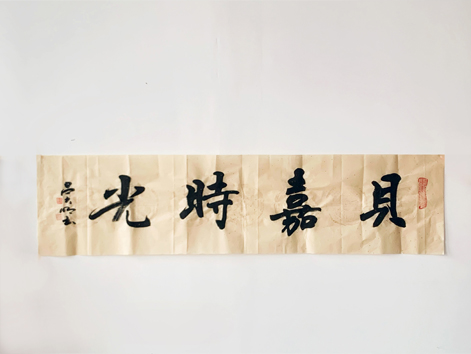 貝嘉時光